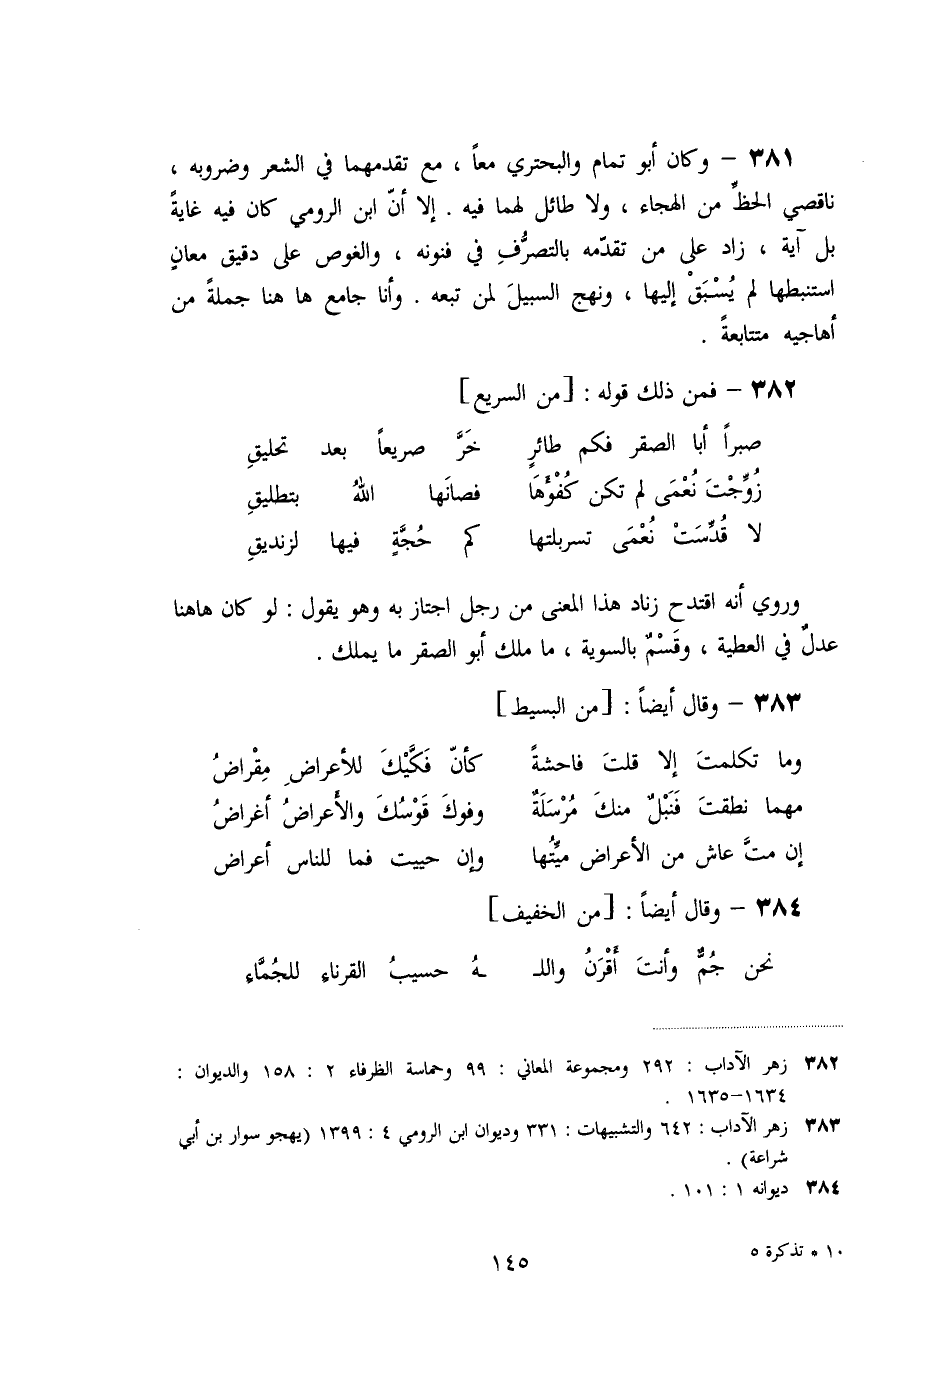 ٣٨١ – وكان أبو تمام والبحتري معاً ، مع تقدمهما في الشعر وضروبه ،
ناقصي الحظِّ من الهجاء ، ولا طائل لهما فيه . إلا أنّ ابن الرومي كان فيه غايةً
بل آية ، زاد على من تقدّمه بالتصرُّفِ في فنونه ، والغوص على دقيق معانٍ
استنبطها لم يُسْبَقْ إليها ، ونهج السبيلَ لمن تبعه . وأنا جامع ها هنا جملةً من
أهاجيه متتابعةً .
٣٨٢ – فمن ذلك قوله : [من السريع]
صبراً أبا الصقر فكم طائرٍ خَرَّ صريعاً بعد تحليقِ
زُوِّجْتَ نُعْمَى لم تكن كُفْؤَهَا فصانَها اللهُ بتطليقِ
لا قُدِّسَتْ نُعْمَى تسربلتها كم حُجَّةٍ فيها لزنديقِ
وروي أنه اقتدح زناد هذا المعنى من رجل اجتاز به وهو يقول : لو كان هاهنا
عدلٌ في العطية ، وقَسْمٌ بالسوية ، ما ملك أبو الصقر ما يملك .
٣٨٣ – وقال أيضاً : [من البسيط]
وما تكلمتَ إلا قلتَ فاحشةً كأنّ فَكَّيْكَ للأعراضِ مِقْراضُ
مهما نطقتَ فَنَبْلٌ منكَ مُرْسَلَةٌ وفوكَ قَوْسُكَ والأَعراضُ أغراضُ
إن متَّ عاش من الأعراض ميِّتُها وإن حييت فما للناس أعراض
٣٨٤ – وقال أيضاً : [من الخفيف]
نحن جُمٌّ وأنتَ أَقْرَنُ واللـ ـهُ حسيبُ القرناءِ للجُمَّاءِ
٣٨٢ زهر الآداب : ٢٩٢ ومجموعة المعاني : ٩٩ وحماسة الظرفاء ٢ : ١٥٨ والديوان :
١٦٣٤–١٦٣٥ .
٣٨٣ زهر الآداب : ٦٤٢ والتشبيهات : ٣٣١ وديوان ابن الرومي ٤ : ١٣٩٩ (يهجو سوار بن أبي
شراعة) .
٣٨٤ ديوانه ١ : ١٠١ .
١٠ * تذكرة ٥
١٤٥